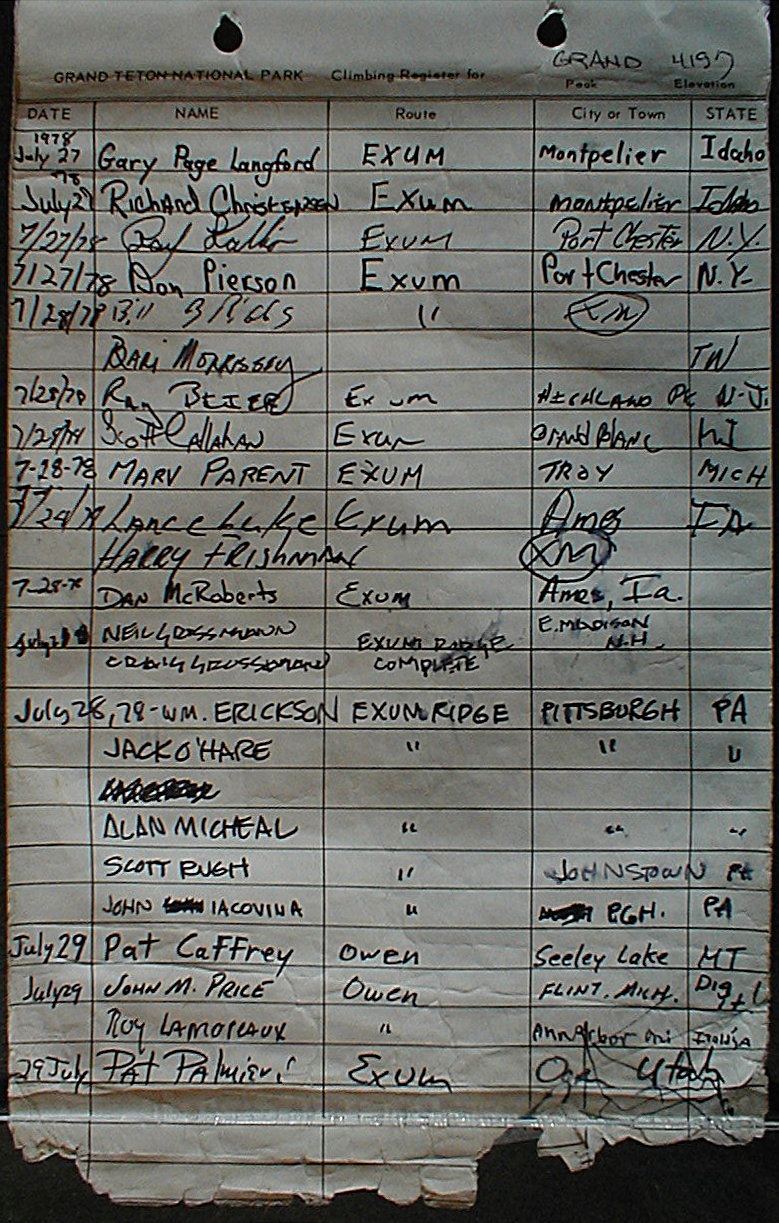 GRAND 4197
GRAND TETON NATIONAL PARK Climbing Register for Peak Elevation
DATE NAME Route City or Town STATE
1978
July 27 Gary Page Langford EXUM Montpelier Idaho
78
July 27 Richard Christensen Exum montpelier Idaho
7/27/78 Exum Port Chester N.Y.
7/27/78 Don Pierson Exum Port Chester N.Y.
7/28/78 Bill " XM
MORRISSEY
7/28/78 Ray BEIER Exum HIGHLAND PK N.J.
7/28/78 Scott CALLAHAN Exum GRAND BLANC MI
7-28-78 MARV PARENT EXUM TROY MICH
Lance Luke Exum Ames IA
HARRY FRISHMAN XM
7-28-78 DAN McROBERTS EXUM Ames, Ia.
July NEIL GROSSMANN EXUM RIDGE E. MADISON N.H.
CRAIG GROSSMANN COMPLETE
July 28, 78 - WM. ERICKSON EXUM RIDGE PITTSBURGH PA
JACK O'HARE " " "
ALAN MICHEAL " " "
SCOTT RUGH " JOHNSTOWN PA
JOHN IACOVINA " PGH. PA
July 29 Pat Caffrey Owen Seeley Lake MT
July 29 JOHN M. PRICE Owen FLINT. MICH.
ROY LAMOREAUX " Ann Arbor mi
29 July Pat Palmieri Exum Utah